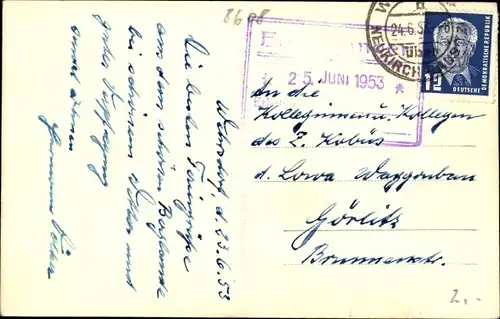 8698
Wehrsdorf, d. 23.6.53
Die besten Feriengrüße
aus dem schönen Berglande
bei schönem Wetter und
guter Verpflegung
sendet allen
Hermann
NEUKIRCH
24.6.53
12
DEUTSCHE
DEMOKRATISCHE REPUBLIK
25. JUNI 1953
An die
Kolleginnen u. Kollegen
des Z. Kobüs
d. Lowa Waggonbau
Görlitz
Brunnerstr.
2,-